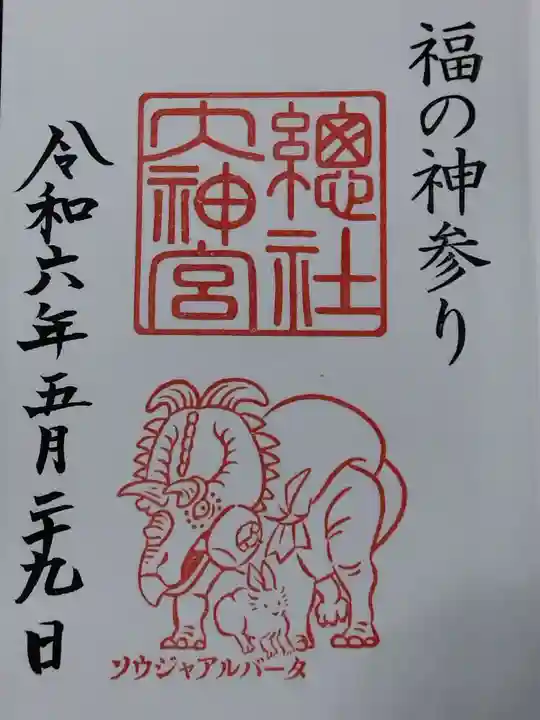 福の神参り
總社
大神宮
令和六年五月二十九日
ソウジャアルバータ